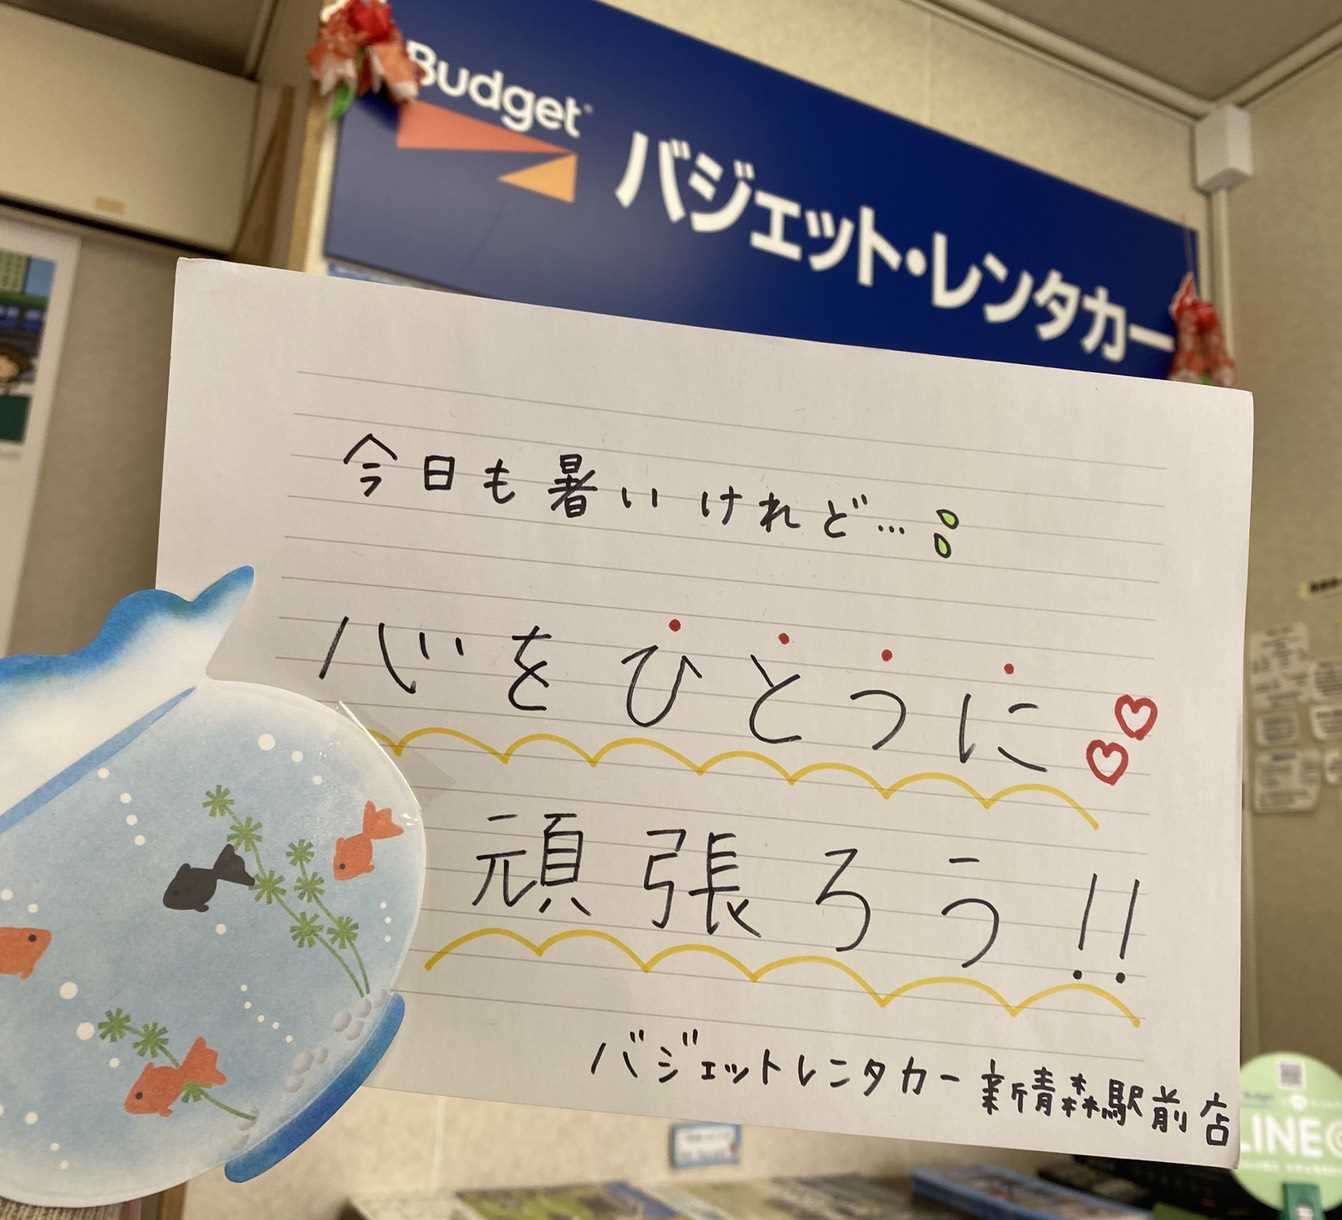 Budget
バジェット・レンタカー
今日も暑いけれど…
心をひとうに
頑張ろう!!
バジェットレンタカー新青森駅前店
LINE@